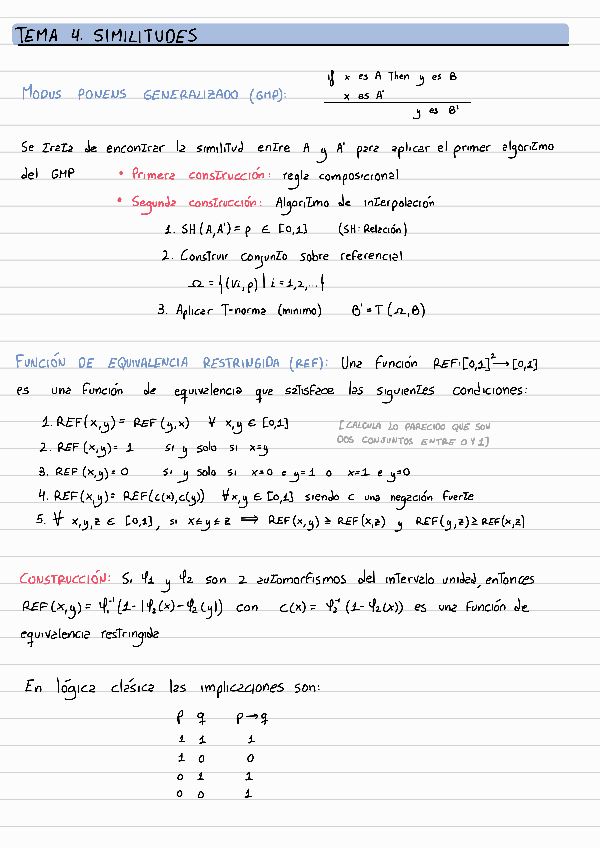 TEMA 4. SIMILITUDES
MODUS PONENS GENERALIZADO (GMP):
if x es A Then y es B
x es A'
y es B'
Se trata de encontrar la similitud entre A y A' para aplicar el primer algoritmo
del GMP • Primera construcción: regla composicional
• Segunda construcción: Algoritmo de interpolación
1. SH(A,A') = p ∈ [0,1] (SH: Relación)
2. Construir conjunto sobre referencial
Ω = {(Vi, p) | i = 1,2,...}
3. Aplicar T-norma (mínimo) B' = T(Ω, B)
FUNCIÓN DE EQUIVALENCIA RESTRINGIDA (REF): Una función REF: [0,1]² → [0,1]
es una función de equivalencia que satisface las siguientes condiciones:
1. REF(x,y) = REF(y,x) ∀ x,y ∈ [0,1]
[CALCULA LO PARECIDO QUE SON
DOS CONJUNTOS ENTRE 0 Y 1]
2. REF(x,y) = 1 si y solo si x=y
3. REF(x,y) = 0 si y solo si x=0 e y=1 o x=1 e y=0
4. REF(x,y) = REF(c(x),c(y)) ∀x,y ∈ [0,1] siendo c una negación fuerte
5. ∀ x,y,z ∈ [0,1], si x≤y≤z ⟹ REF(x,y) ≥ REF(x,z) y REF(y,z) ≥ REF(x,z)
CONSTRUCCIÓN: Si φ1 y φ2 son 2 automorfismos del intervalo unidad, entonces
REF(x,y) = φ₁⁻¹(1-|φ₂(x)-φ₂(y)|) con c(x) = φ₂⁻¹(1-φ₂(x)) es una función de
equivalencia restringida
En lógica clásica las implicaciones son:
p q p→q
1 1 1
1 0 0
0 1 1
0 0 1